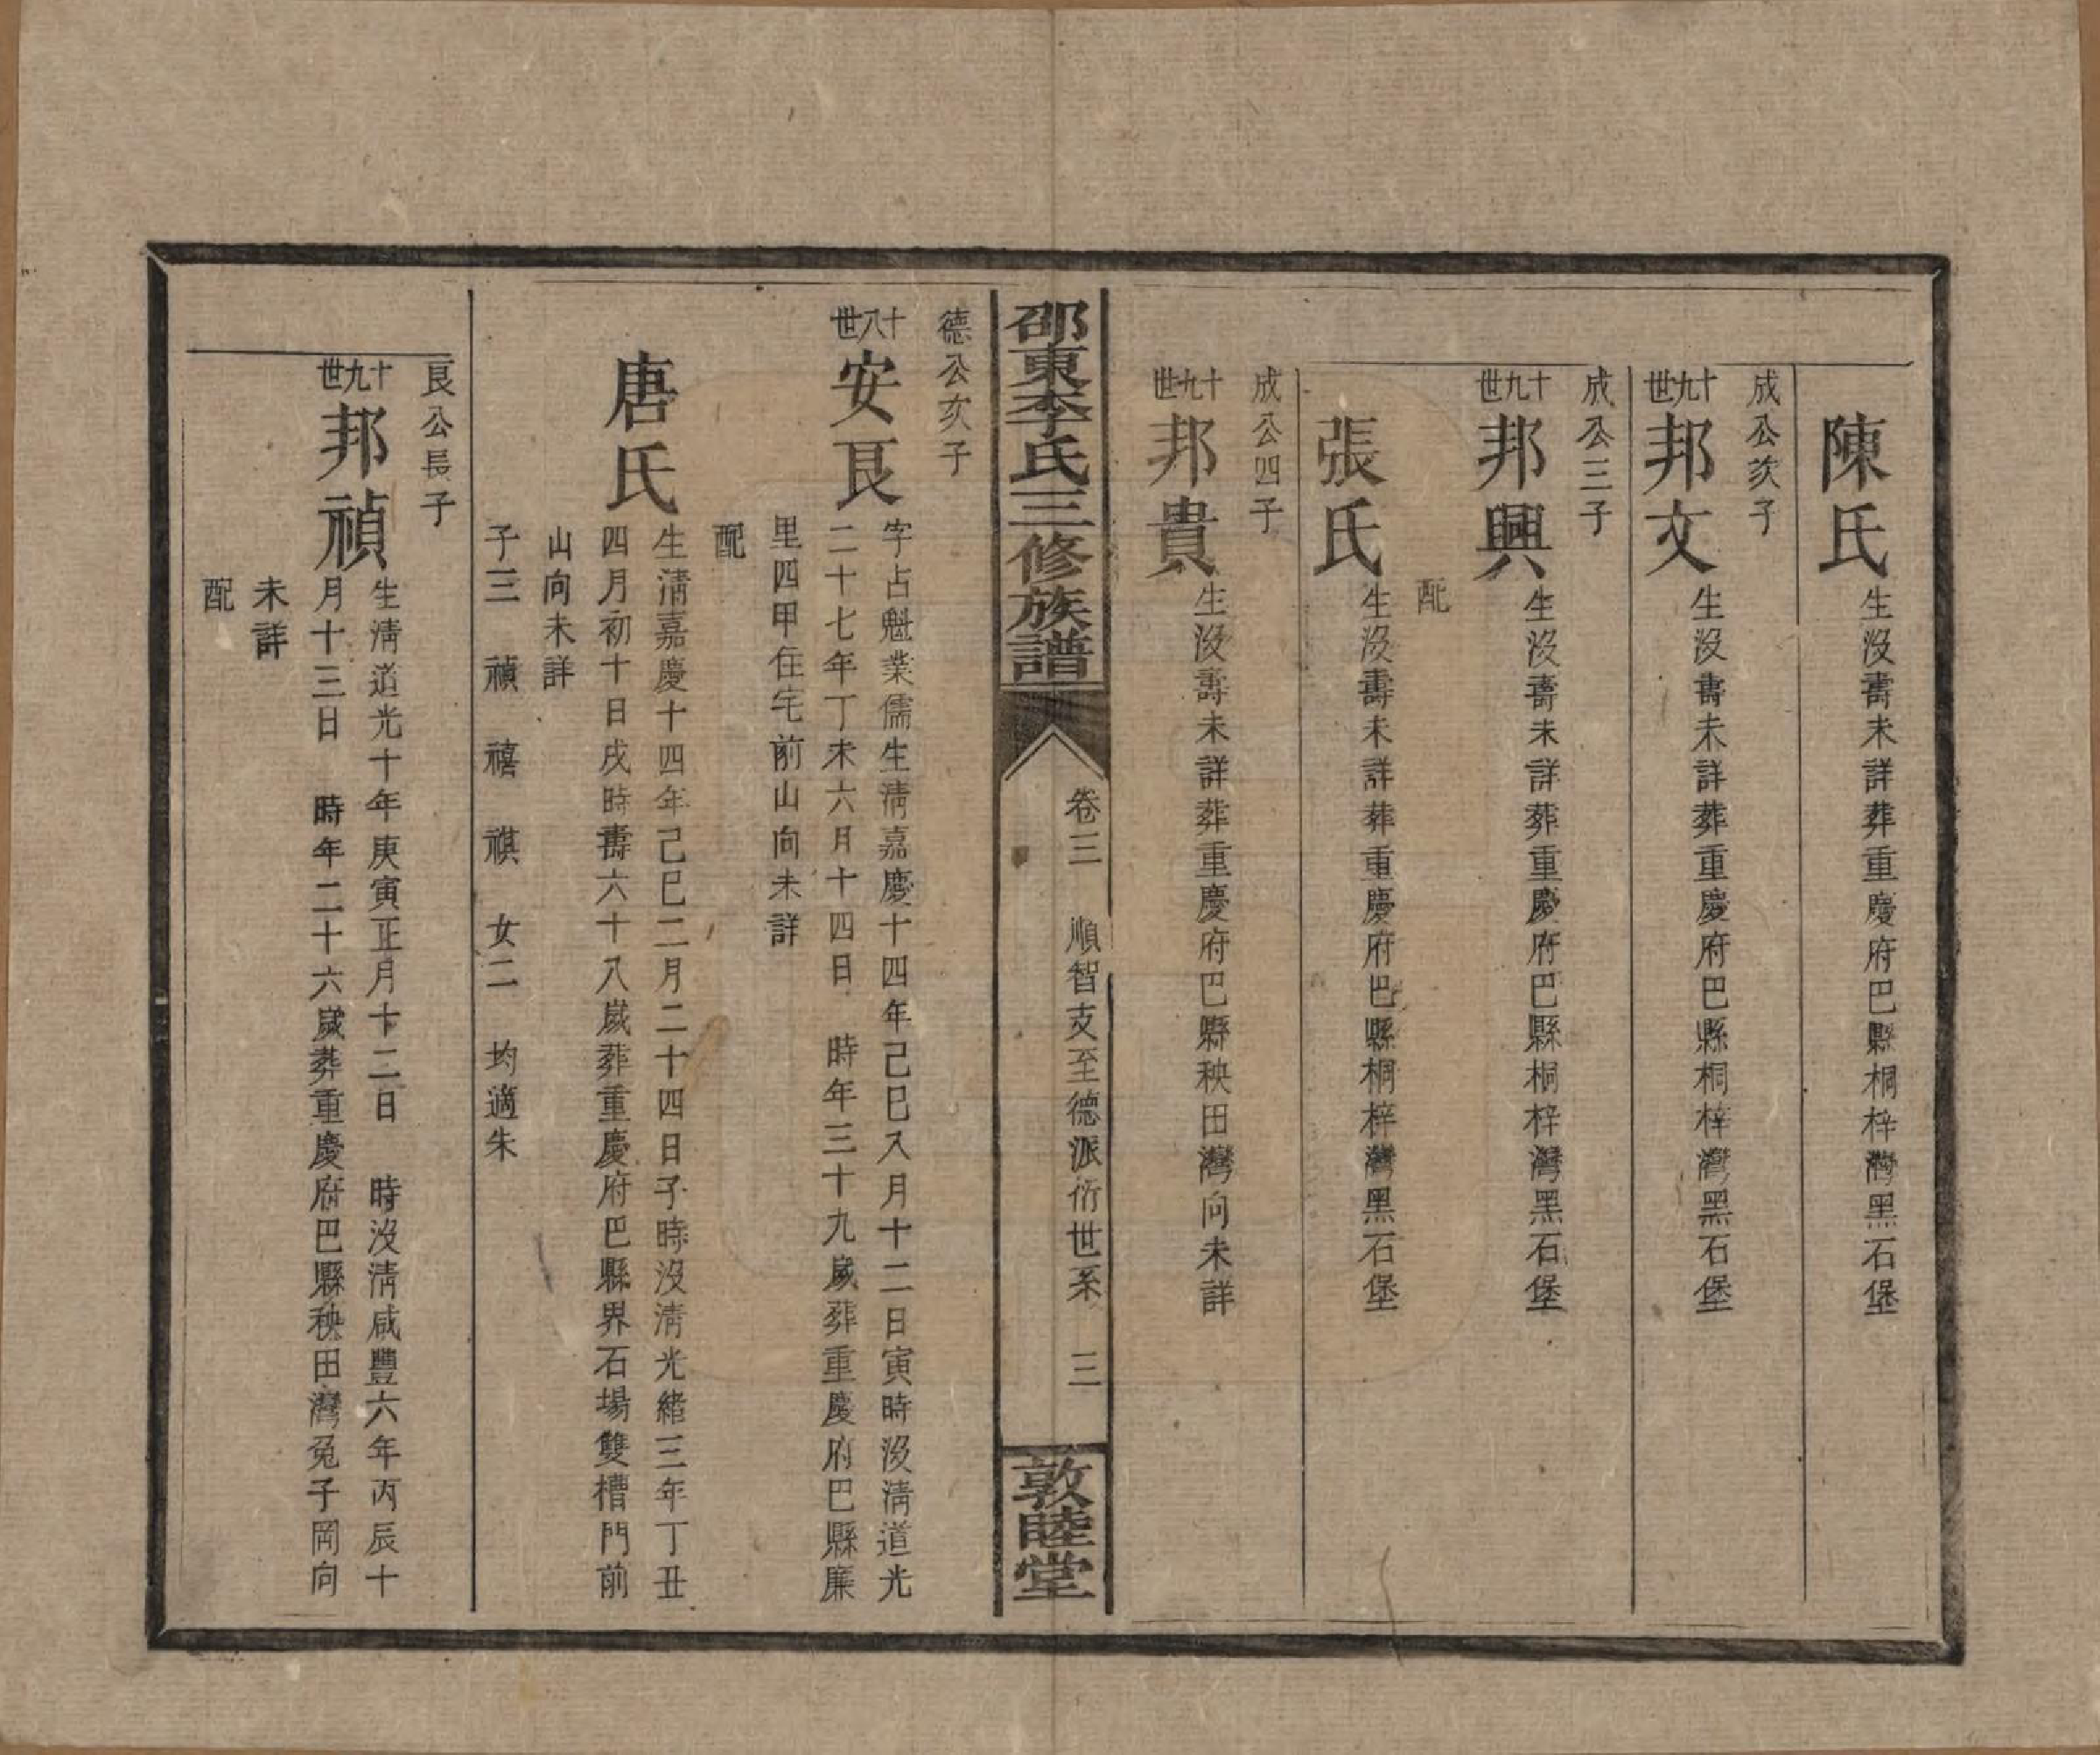 陳氏
生沒壽未詳葬重慶府巴縣桐梓灣黑石堡
成公次子
十九世
邦文
生沒壽未詳葬重慶府巴縣桐梓灣黑石堡
成公三子
十九世
邦興
生沒壽未詳葬重慶府巴縣桐梓灣黑石堡
配
張氏
生沒壽未詳葬重慶府巴縣桐梓灣黑石堡
成公四子
十九世
邦貴
生沒壽未詳葬重慶府巴縣秧田灣向未詳
邵東李氏三修族譜
卷三 順智支至德派衍世系 三
敦睦堂
德公次子
十八世
安艮
字占魁業儒生清嘉慶十四年己巳八月十二日寅時沒清道光
二十七年丁未六月十四日 時年三十九歲葬重慶府巴縣廉
里四甲住宅前山向未詳
配
唐氏
生清嘉慶十四年己巳二月二十四日子時沒清光緒三年丁丑
四月初十日戌時壽六十八歲葬重慶府巴縣界石場雙槽門前
山向未詳
子三 禎 禧 祺 女二 均適朱
艮公長子
十九世
邦禎
生清道光十年庚寅正月十二日 時沒清咸豐六年丙辰十
月十三日 時年二十六歲葬重慶府巴縣秧田灣兔子岡向
未詳
配